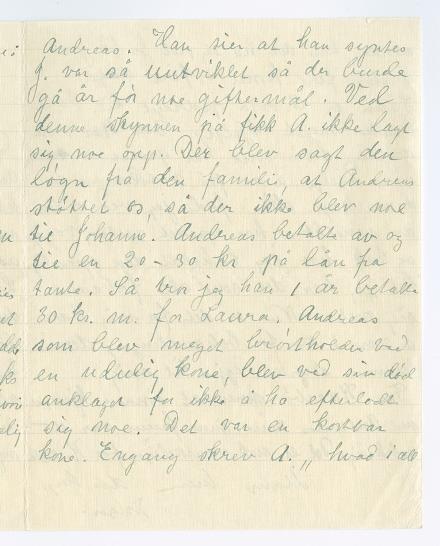 Andreas. Han sier at han syntes
J. var så uutviklet så der burde
gå år før noe giftermål. Ved
denne skynnen på fikk A. ikke lagt
sig noe opp. Der blev sagt den
løgn fra den familie, at Andreas
støttet os, så der ikke blev noe
til Johanne. Andreas betalte av og
til en 20-30 kr på lån fra
tante. Så tror jeg han 1 år betalte
30 kr. m. for Laura. Andreas
som blev meget
en udulig kone, blev ved sin død
anklaget for ikke å ha efterlodt
sig noe. Det var en kostbar
kone. Engang skrev A. „ hvad i all